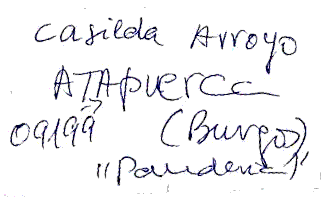 Casilda Arroyo
ATApuerca
09199 (Burgos)
"Panadería"